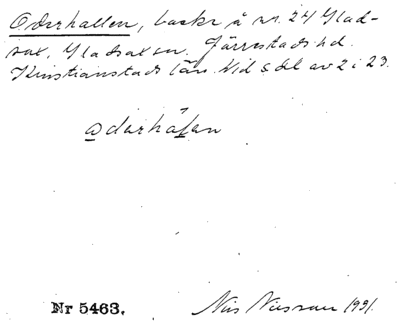 Oderhallen, backe å nr. 24 Glad-
sax, Gladsaxsn. Järrestads hd.
Kristianstads län. Vid s. del av 2 i 23.
aderhalen
Nr 5463. Nils Nilsson 1931.